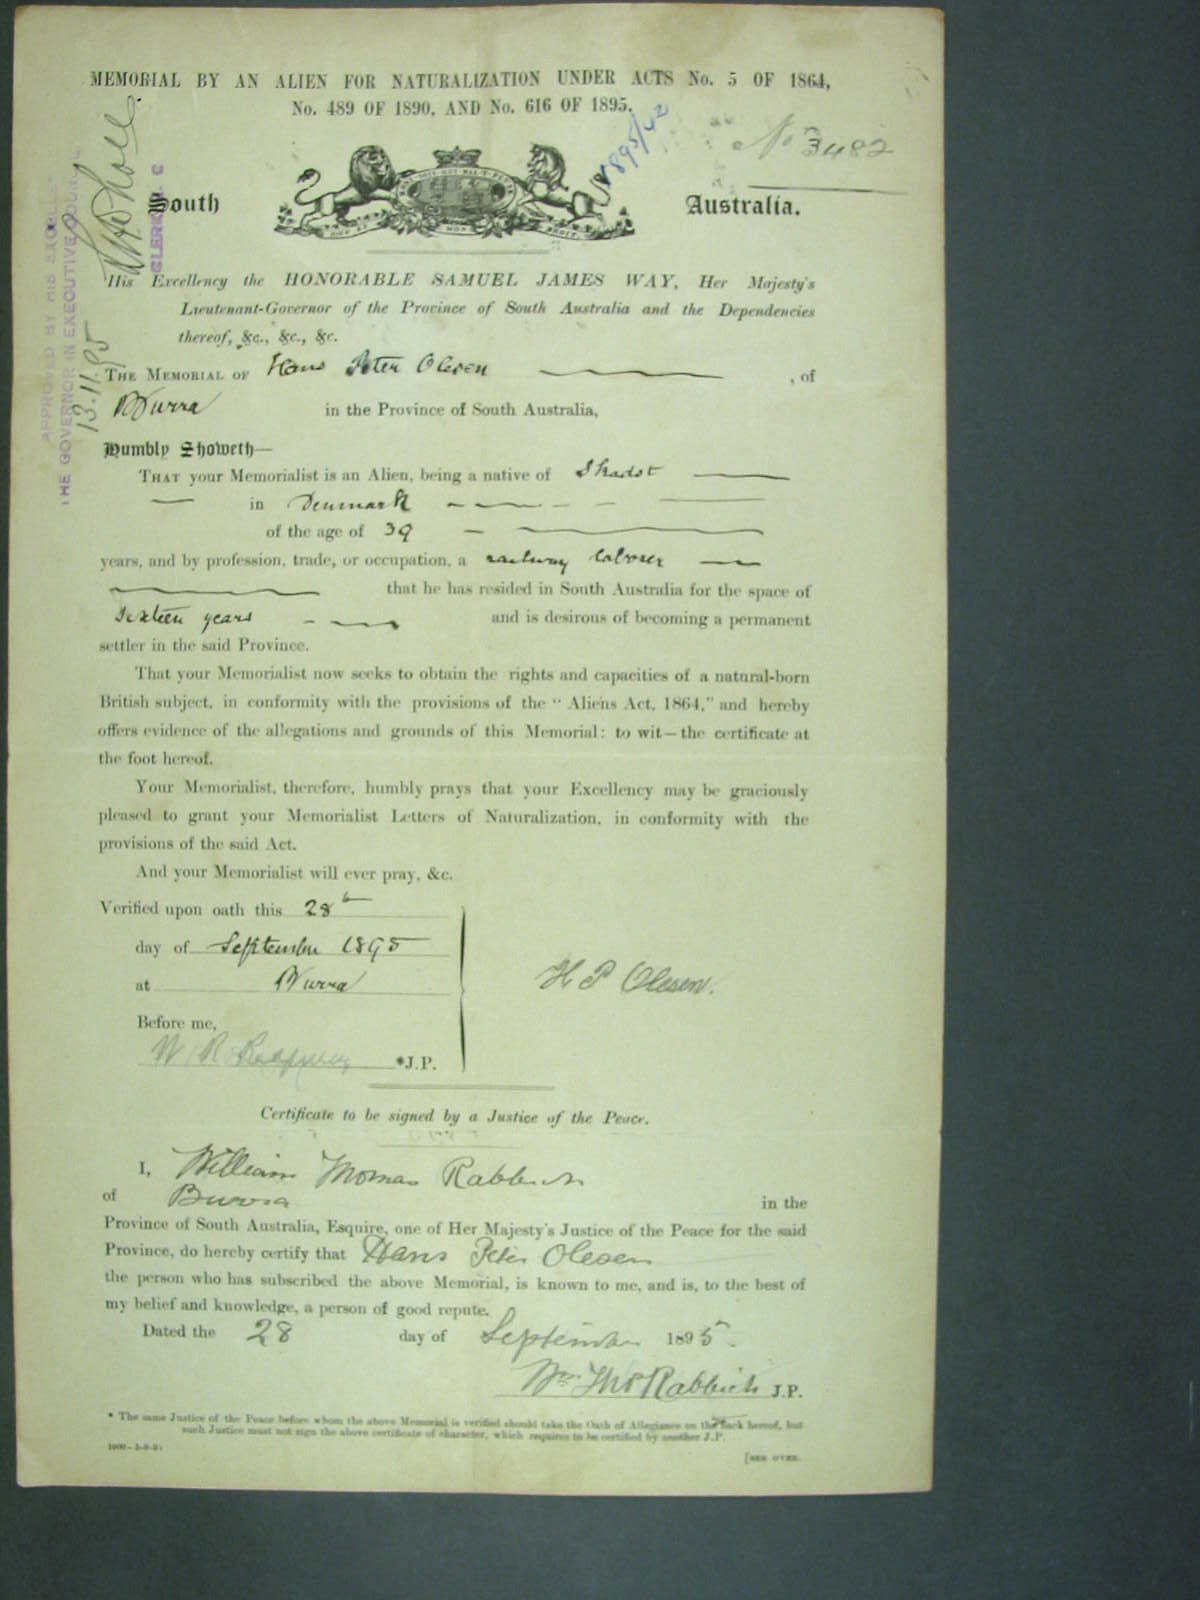 MEMORIAL BY AN ALIEN FOR NATURALIZATION UNDER ACTS No. 5 OF 1864,
No. 489 OF 1890, AND No. 616 OF 1895.
1895/42
No 3482
South Australia.
APPROVED BY HIS EXCELLENCY
THE GOVERNOR IN EXECUTIVE COUNCIL
13.11.95
CLERK
His Excellency the HONORABLE SAMUEL JAMES WAY, Her Majesty's
Lieutenant-Governor of the Province of South Australia and the Dependencies
thereof, &c., &c., &c.
THE MEMORIAL OF Hans Peter Olesen , of
Burra in the Province of South Australia,
Humbly Showeth—
THAT your Memorialist is an Alien, being a native of
in Denmark
of the age of 39
years, and by profession, trade, or occupation, a railway laborer
that he has resided in South Australia for the space of
Sixteen years and is desirous of becoming a permanent
settler in the said Province.
That your Memorialist now seeks to obtain the rights and capacities of a natural-born
British subject, in conformity with the provisions of the "Aliens Act, 1864," and hereby
offers evidence of the allegations and grounds of this Memorial: to wit—the certificate at
the foot hereof.
Your Memorialist, therefore, humbly prays that your Excellency may be graciously
pleased to grant your Memorialist Letters of Naturalization, in conformity with the
provisions of the said Act.
And your Memorialist will ever pray, &c.
Verified upon oath this 28th
day of September 1895
at Burra
H P Olesen.
Before me,
W R *J.P.
Certificate to be signed by a Justice of the Peace.
I, William Thomas Rabbich
of Burra in the
Province of South Australia, Esquire, one of Her Majesty's Justice of the Peace for the said
Province, do hereby certify that Hans Peter Olesen
the person who has subscribed the above Memorial, is known to me, and is, to the best of
my belief and knowledge, a person of good repute.
Dated the 28 day of September 1895.
Wm Thos Rabbich J.P.
* The same Justice of the Peace before whom the above Memorial is verified should take the Oath of Allegiance on the back hereof, but
such Justice must not sign the above certificate of character, which requires to be certified by another J.P.
[SEE OVER.